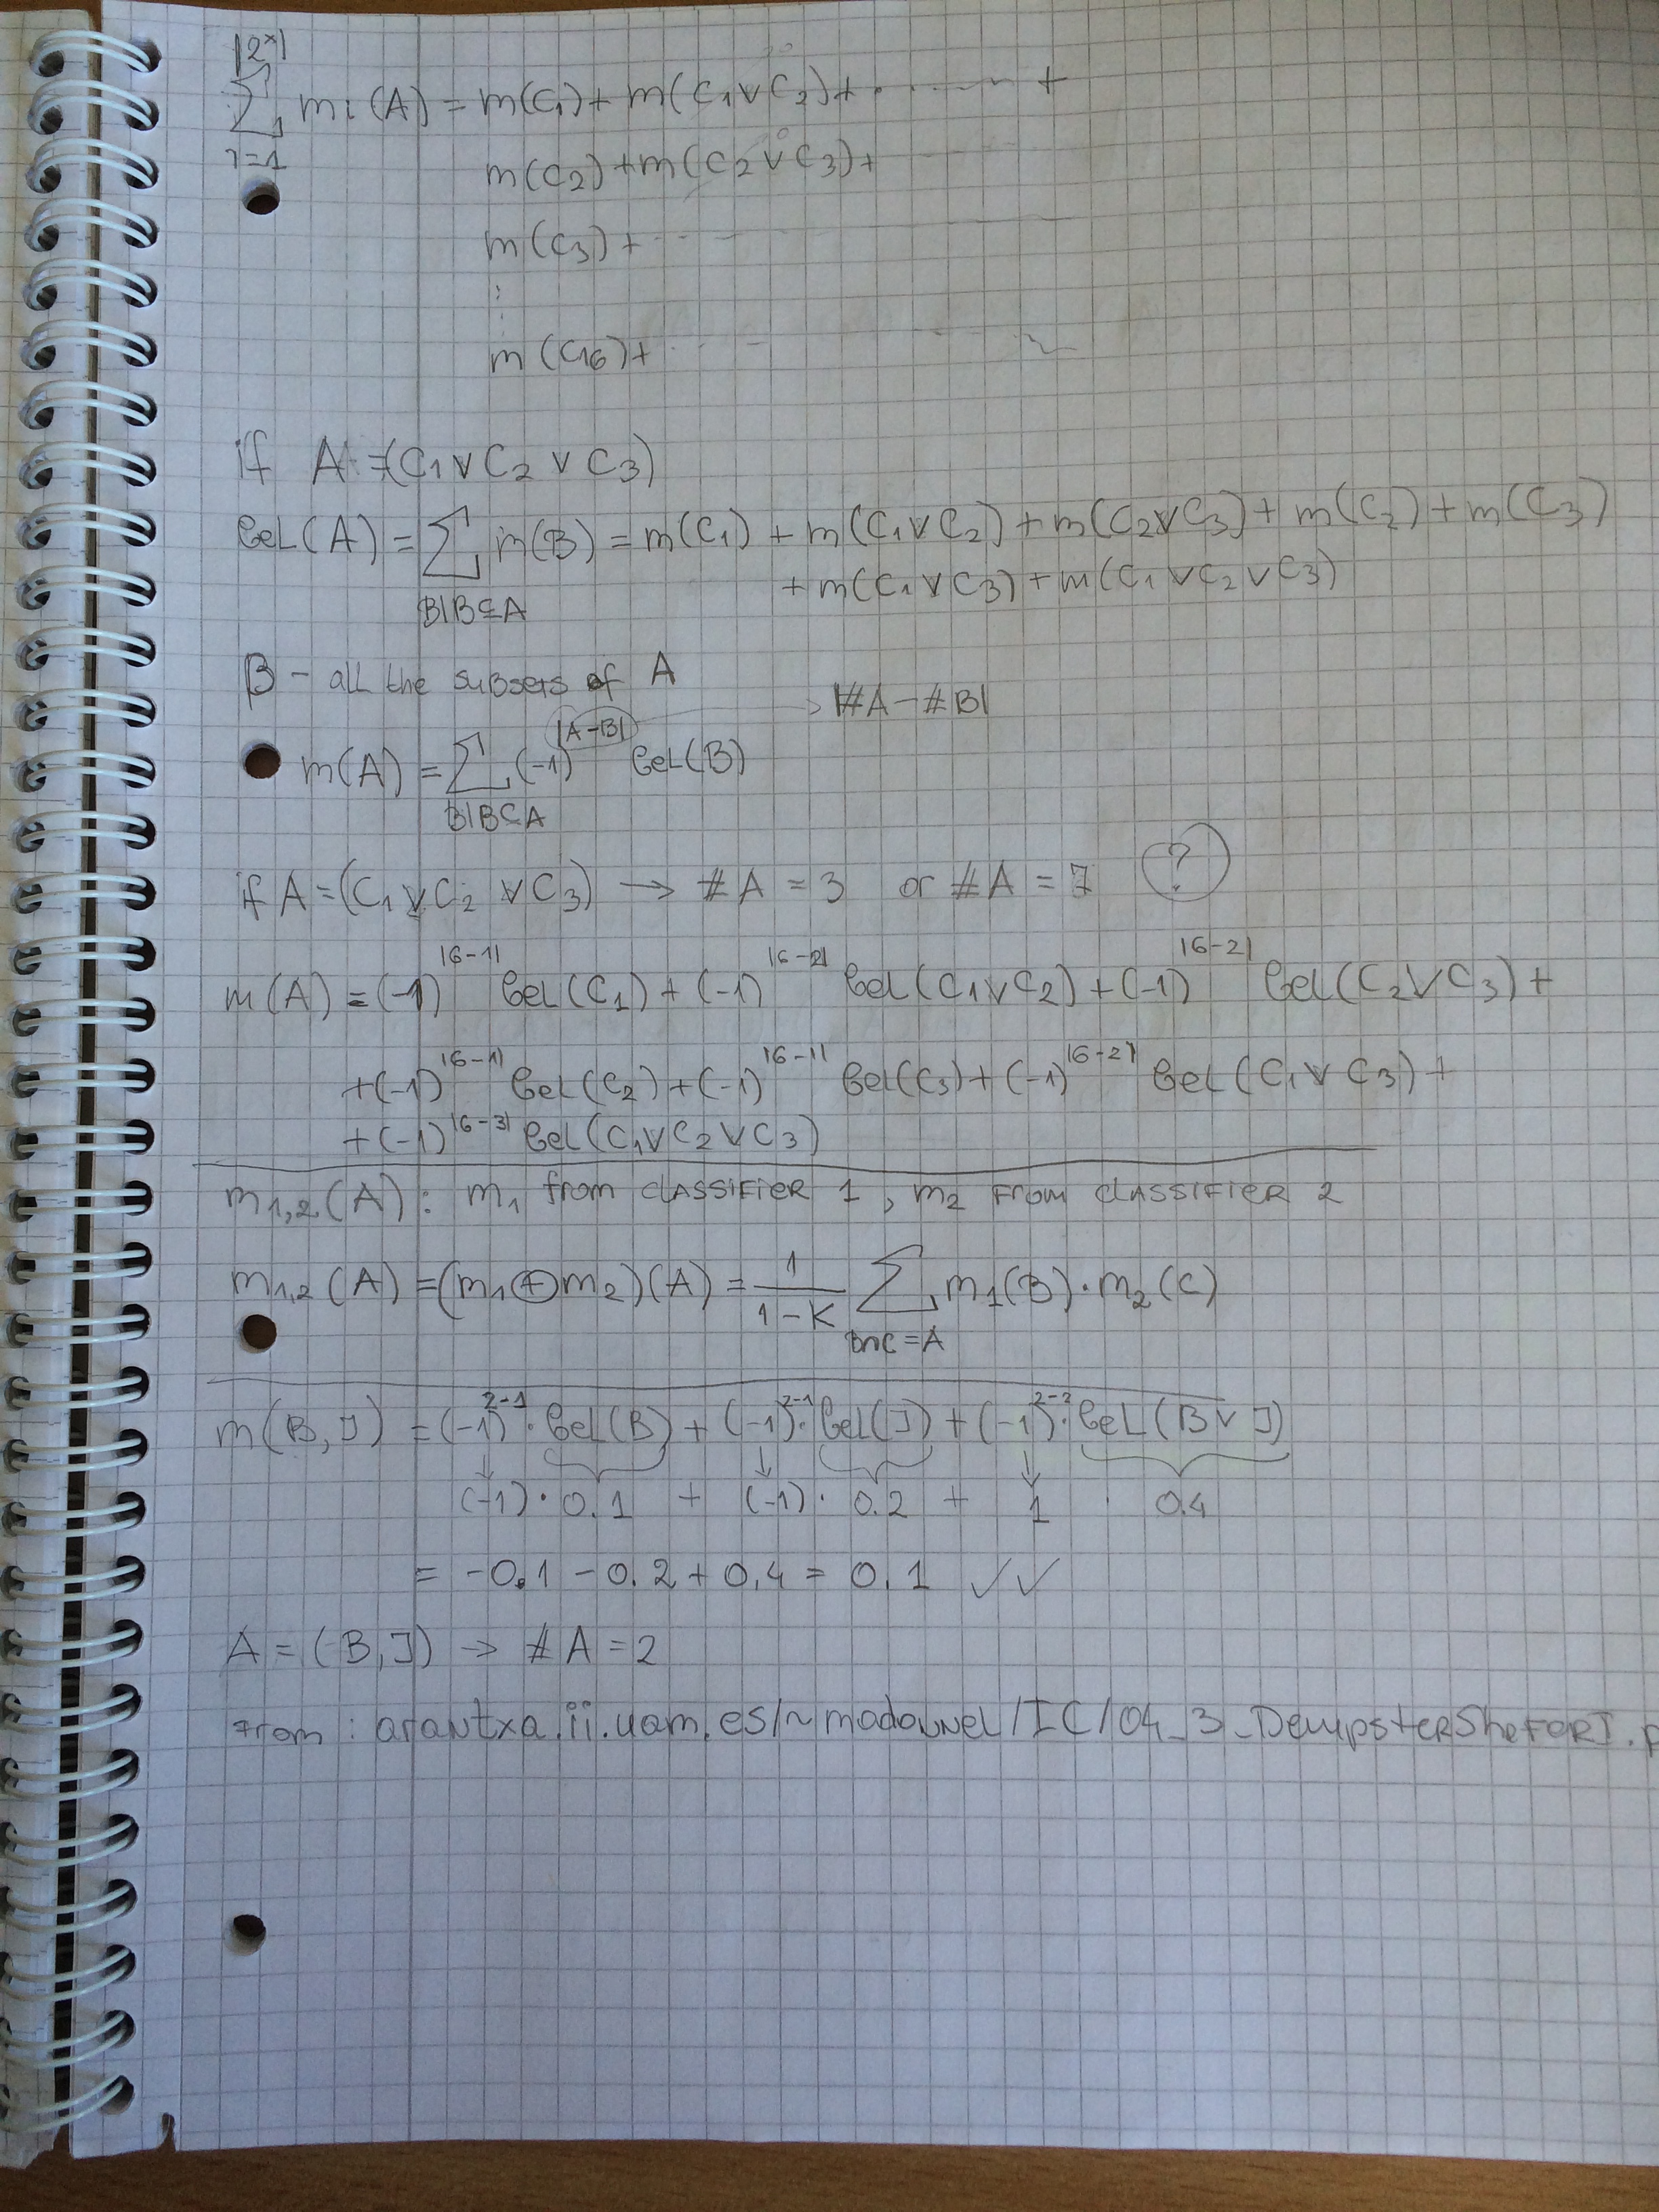 |2^x|
∑ mi(A) = m(C1) + m(C1∨C2) + . . . . . +
i=1
m(C2) + m(C2∨C3) +
m(C3) + - - -
:
m(C16) + - - -
if A = (C1 ∨ C2 ∨ C3)
Bel(A) = ∑ m(B) = m(C1) + m(C1∨C2) + m(C2∨C3) + m(C2) + m(C3)
B|B⊆A + m(C1∨C3) + m(C1∨C2∨C3)
B - all the subsets of A
→ |#A - #B|
m(A) = ∑ (-1)^|A-B| Bel(B)
B|B⊆A
if A = (C1 ∨ C2 ∨ C3) → #A = 3 or #A = 7 ?
m(A) = (-1)^|6-1| Bel(C1) + (-1)^|6-2| Bel(C1∨C2) + (-1)^|6-2| Bel(C2∨C3) +
+ (-1)^|6-1| Bel(C2) + (-1)^|6-1| Bel(C3) + (-1)^|6-2| Bel(C1∨C3) +
+ (-1)^|6-3| Bel(C1∨C2∨C3)
m1,2(A): m1 from CLASSIFIER 1, m2 FROM CLASSIFIER 2
m1,2(A) = (m1⊕m2)(A) = 1/(1-K) ∑ m1(B)·m2(C)
B∩C=A
m(B,J) = (-1)^2-1 · Bel(B) + (-1)^2-1 · Bel(J) + (-1)^2-2 · Bel(B∨J)
(-1) · 0.1 + (-1) · 0.2 + 1 · 0.4
= -0.1 - 0.2 + 0.4 = 0.1 ✓✓
A = (B,J) → #A = 2
From: arantxa.ii.uam.es/~modonnel/IC/04_3_DempsterShaferI.p